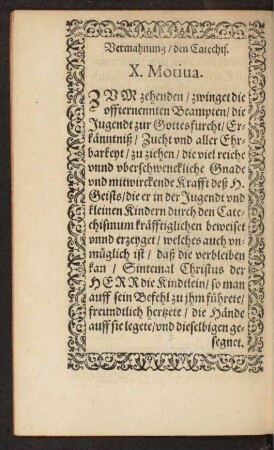 Vermahnung / den Catechis.
X. Motiua.
ZVM zehenden / zwinget die
offternennten Beampten / die
Jugendt zur Gottesfurcht / Er-
känntniß / Zucht vnd aller Ehr-
barkeyt / zu ziehen / die viel reiche
vnnd vberschwenckliche Gnade
vnd mitwirckende Krafft deß H.
Geists / die er in der Jugendt vnd
kleinen Kindern durch den Cate-
chismum kräfftiglichen beweiset
vnnd erzeyget / welches auch vn-
müglich ist / daß die verbleiben
kan / Sintemal Christus der
HERR die Kindtlein / so man
auff sein Befehl zu jhm führete /
freundtlich hertzete / die Hände
auff sie legete / vnd dieselbigen ge-
segnet.